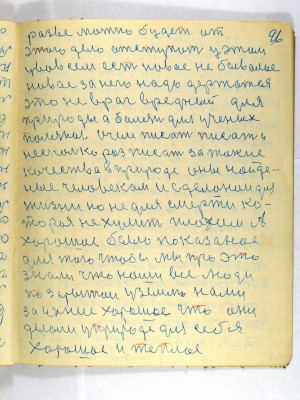 96
разве можно будет от
этого дела отступит у этом
цвовсем ест новое не бывалое
новае за него надо держатся
это не враг вредный для
природы а болеят для ученых
полезны. Очем писат писать
несколко раз писат за такие
качества в природе оны найде-
ные человеком и сделаном для
жизни но не для смерти ко-
торая не хулит плохсем А
хорошое было показаное
для того чтобы мы про это
знали что наши все люди
по зарытом у землю нами
за ихние хорошое что они
делали у природе для себя
Хорошое и теплое